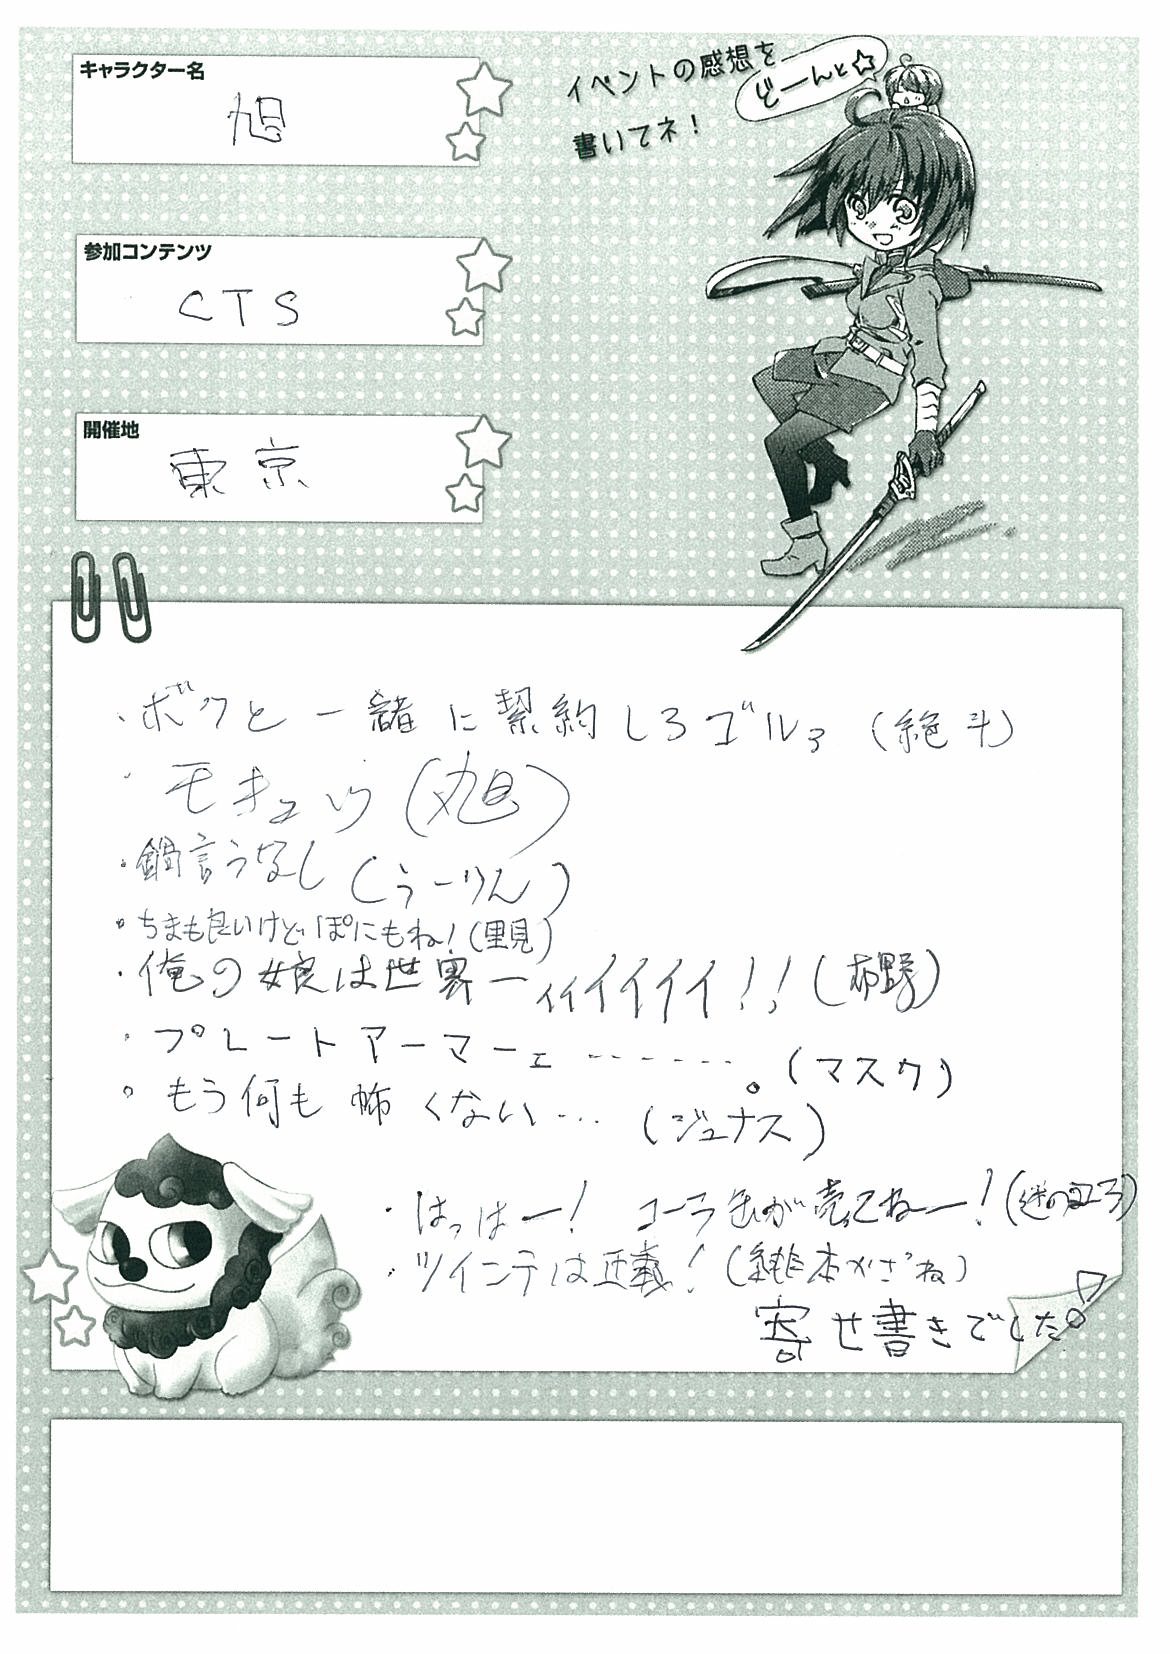 キャラクター名
旭
イベントの感想を
どーんと☆
書いてネ！
参加コンテンツ
CTS
開催地
東京
・ボクと一緒に契約しろゴルァ（絶斗）
・モきゅッ（旭）
・鍋言うなし（うーりん）
・ちまも良いけどぽにもね！（里見）
・俺の娘は世界一ィィイイイイ！！（布野）
・プレートアーマーェ………。（マスク）
・もう何も怖くない…（ジュナス）
・はっはー！ コーラ缶が売ってねー！（迷の）
・ツインテは正義！（本かざね）
寄せ書きでした。